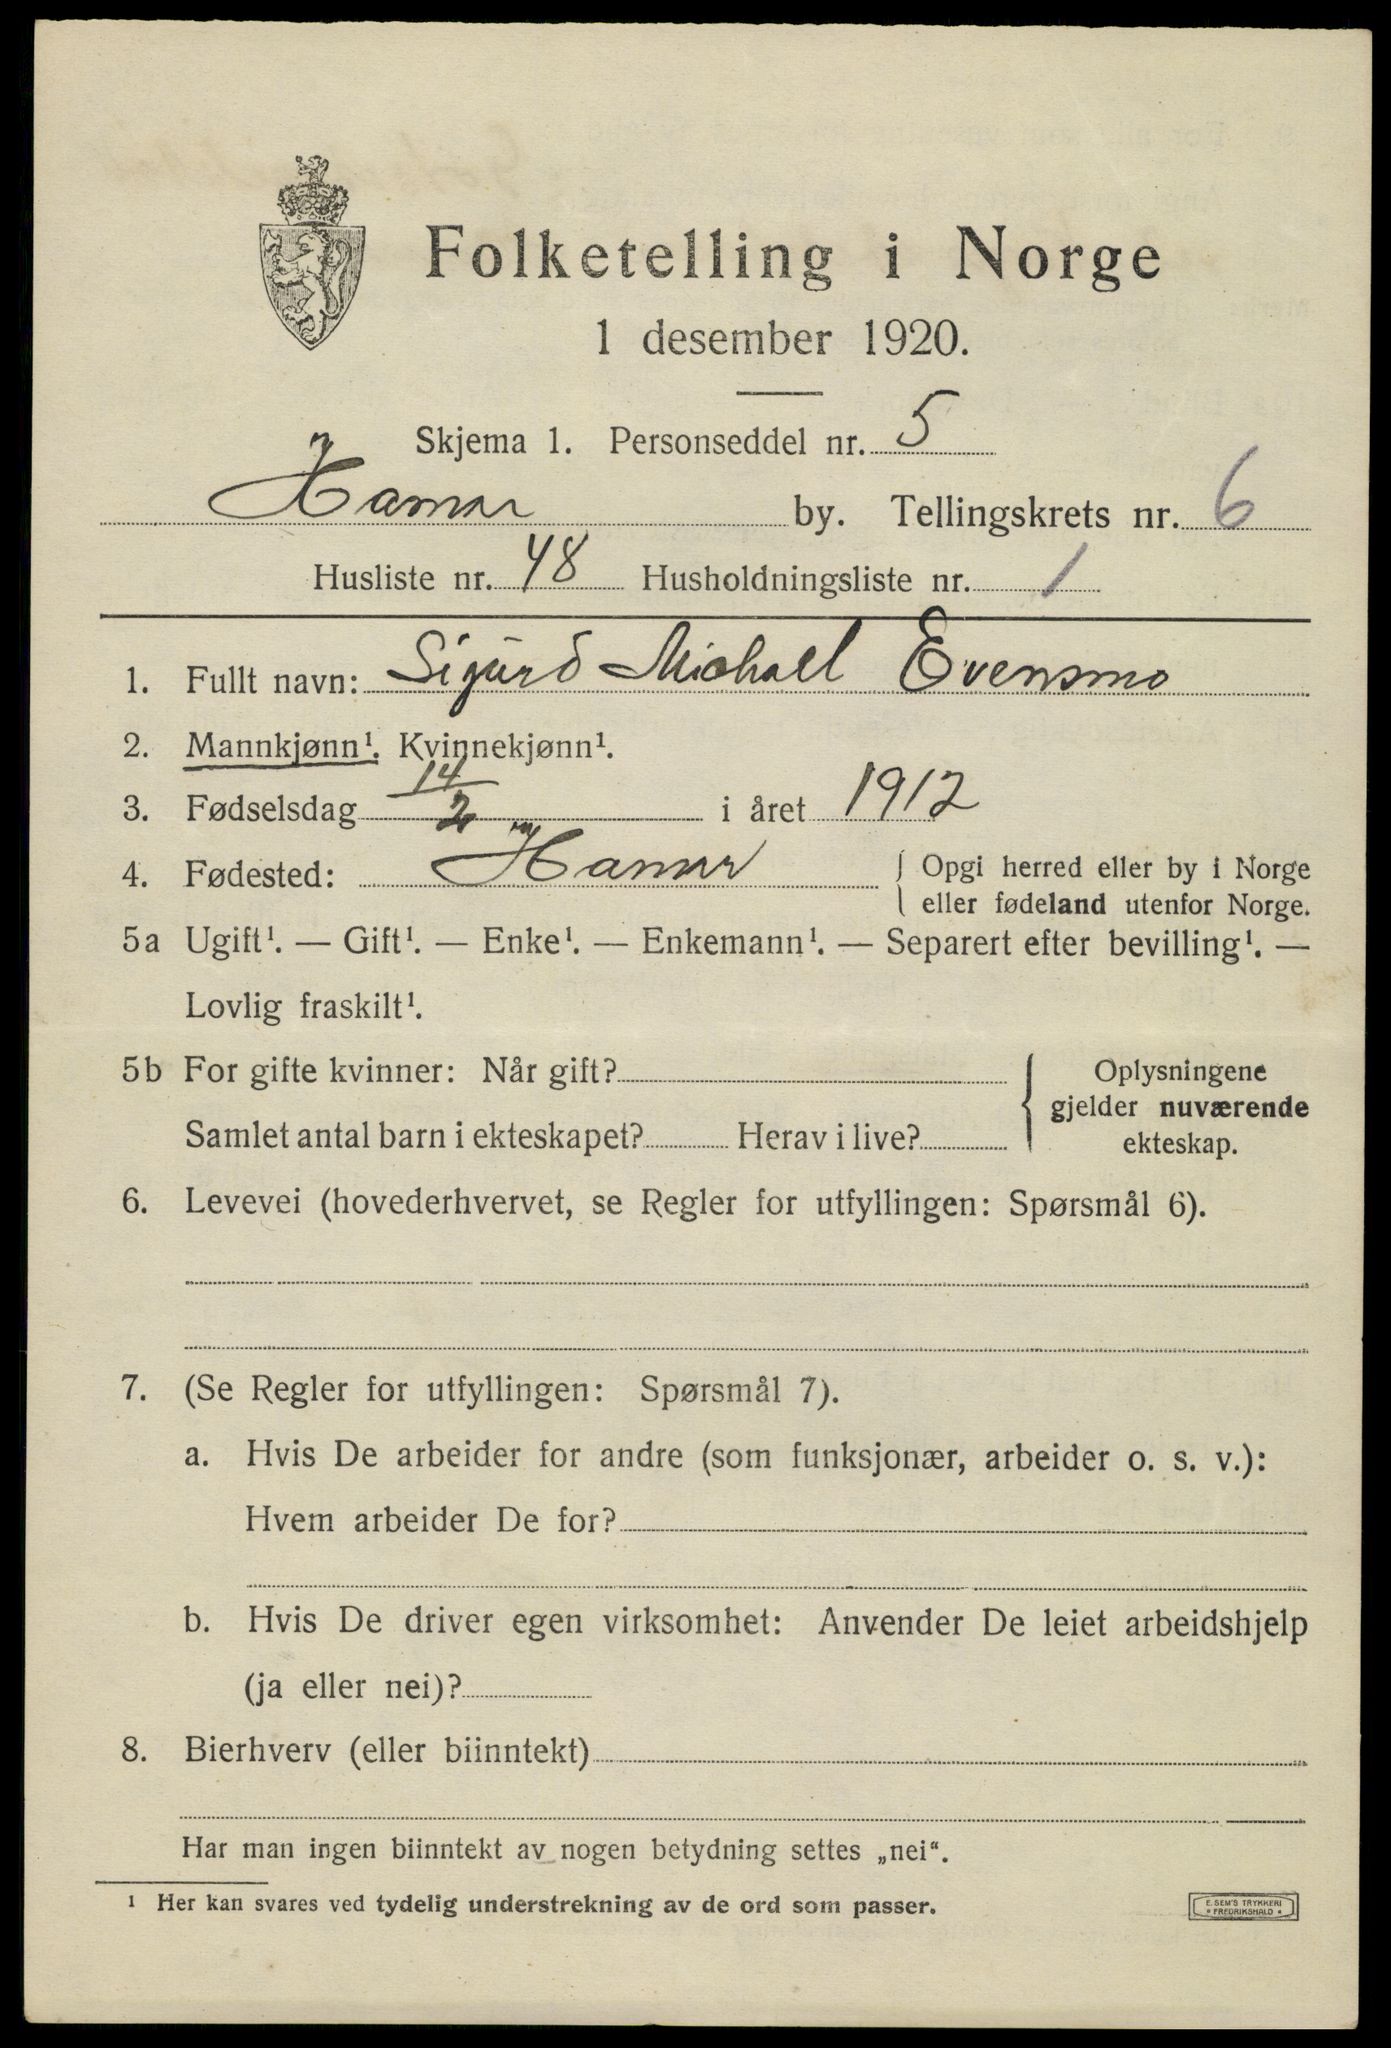 Folketelling i Norge
1 desember 1920.
Skjema 1. Personseddel nr. 5
Hamar by. Tellingskrets nr. 6
Husliste nr. 48 Husholdningsliste nr. 1
1. Fullt navn: Sigurd Michael Evensmo
2. Mannkjønn¹. Kvinnekjønn¹.
3. Fødselsdag 14/2 i året 1912
4. Fødested: Hamar { Opgi herred eller by i Norge
eller fødeland utenfor Norge.
5a Ugift¹. — Gift¹. — Enke¹. — Enkemann¹. — Separert efter bevilling¹. —
Lovlig fraskilt¹.
5b For gifte kvinner: Når gift?
Samlet antal barn i ekteskapet? Herav i live?
{ Oplysningene
gjelder nuværende
ekteskap.
6. Levevei (hovederhvervet, se Regler for utfyllingen: Spørsmål 6).
7. (Se Regler for utfyllingen: Spørsmål 7).
a. Hvis De arbeider for andre (som funksjonær, arbeider o. s. v.):
Hvem arbeider De for?
b. Hvis De driver egen virksomhet: Anvender De leiet arbeidshjelp
(ja eller nei)?
8. Bierhverv (eller biinntekt)
Har man ingen biinntekt av nogen betydning settes „nei“.
¹ Her kan svares ved tydelig understrekning av de ord som passer.
E. SEM'S TRYKKERI
* FREDRIKSHALD *